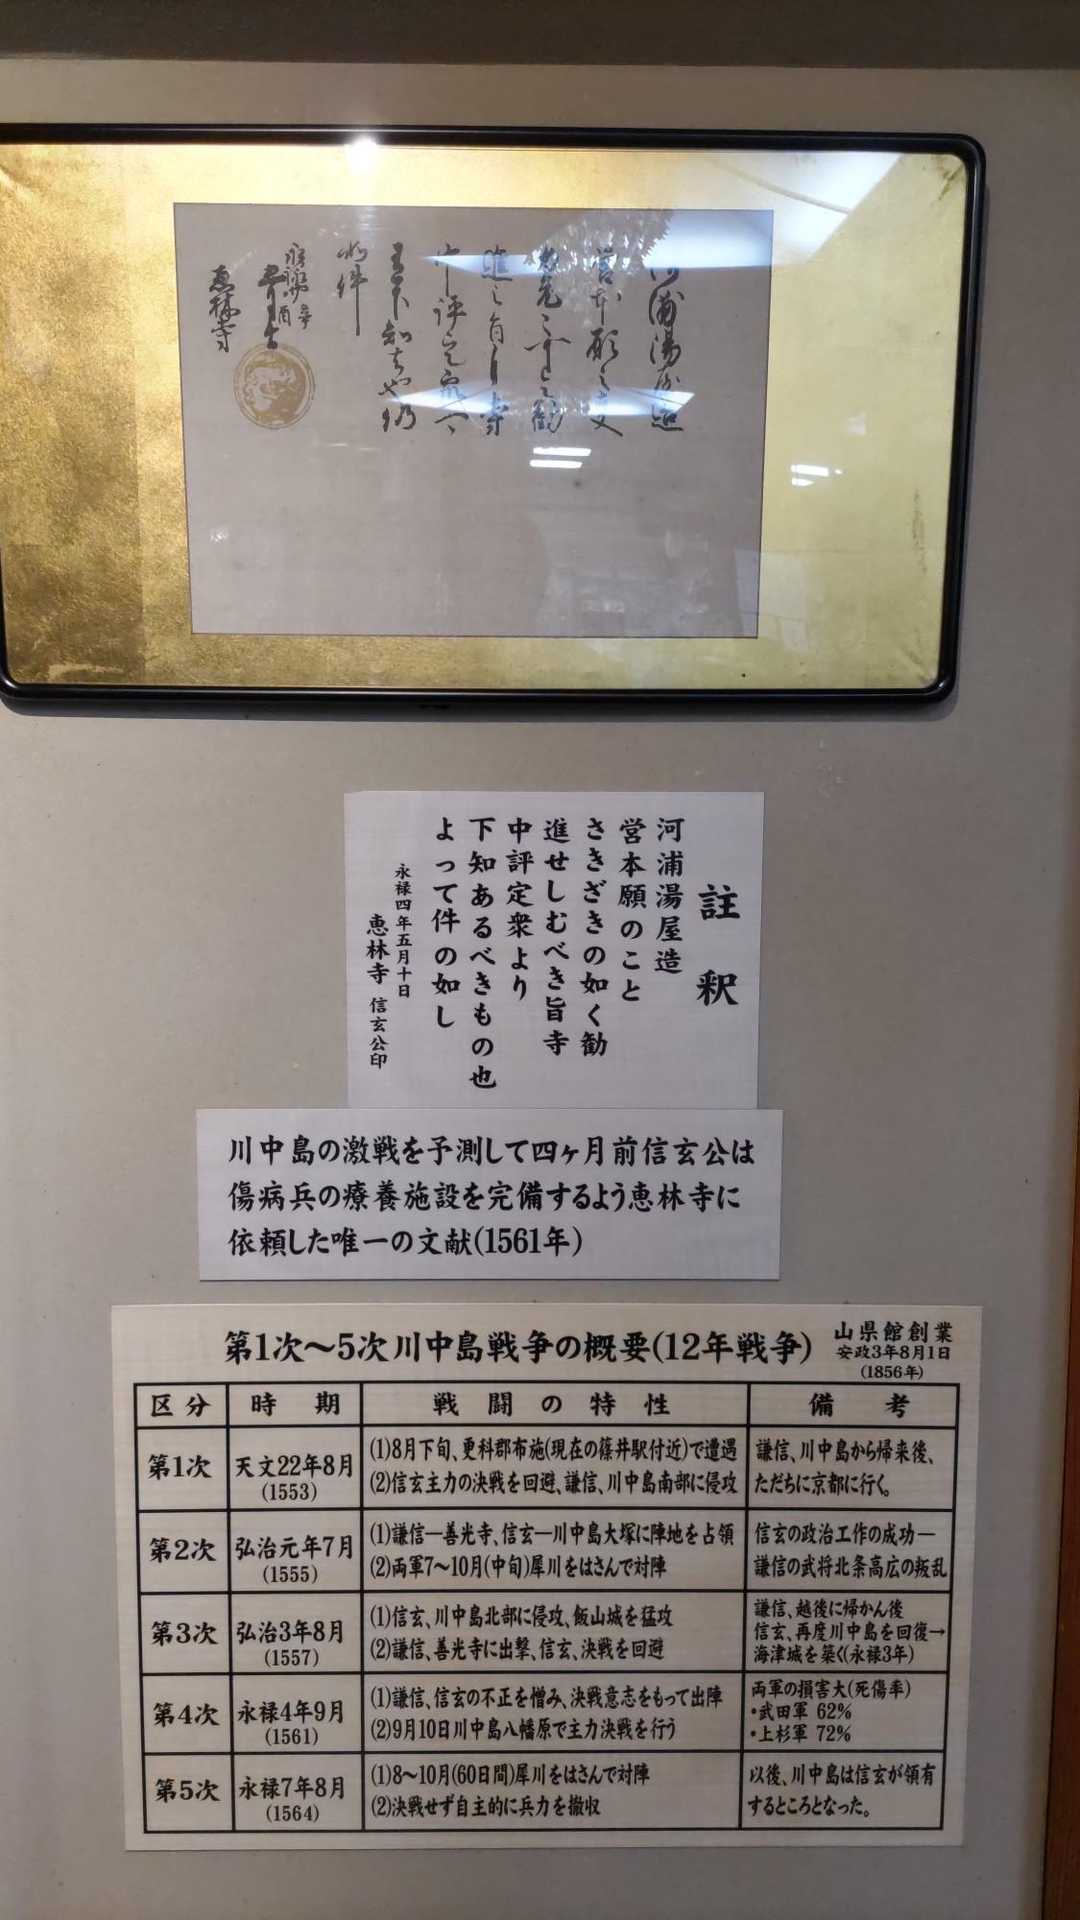 恵林寺
註釈
河浦湯屋造
営本願のこと
さきざきの如く勧
進せしむべき旨寺
中評定衆より
下知あるべきもの也
よって件の如し
永禄四年五月十日
恵林寺 信玄公印
川中島の激戦を予測して四ヶ月前信玄公は
傷病兵の療養施設を完備するよう恵林寺に
依頼した唯一の文献(1561年)
第1次〜5次川中島戦争の概要(12年戦争)
山県館創業
安政3年8月1日
(1856年)
区分 時期 戦闘の特性 備考
第1次
天文22年8月
(1553)
(1)8月下旬、更科郡布施(現在の篠井駅付近)で遭遇
(2)信玄主力の決戦を回避、謙信、川中島南部に侵攻
謙信、川中島から帰来後、
ただちに京都に行く。
第2次
弘治元年7月
(1555)
(1)謙信―善光寺、信玄―川中島大塚に陣地を占領
(2)両軍7〜10月(中旬)犀川をはさんで対陣
信玄の政治工作の成功―
謙信の武将北条高広の叛乱
第3次
弘治3年8月
(1557)
(1)信玄、川中島北部に侵攻、飯山城を猛攻
(2)謙信、善光寺に出撃、信玄、決戦を回避
謙信、越後に帰かん後
信玄、再度川中島を回復→
海津城を築く(永禄3年)
第4次
永禄4年9月
(1561)
(1)謙信、信玄の不正を憎み、決戦意志をもって出陣
(2)9月10日川中島八幡原で主力決戦を行う
両軍の損害大(死傷率)
・武田軍 62%
・上杉軍 72%
第5次
永禄7年8月
(1564)
(1)8〜10月(60日間)犀川をはさんで対陣
(2)決戦せず自主的に兵力を撤収
以後、川中島は信玄が領有
するところとなった。